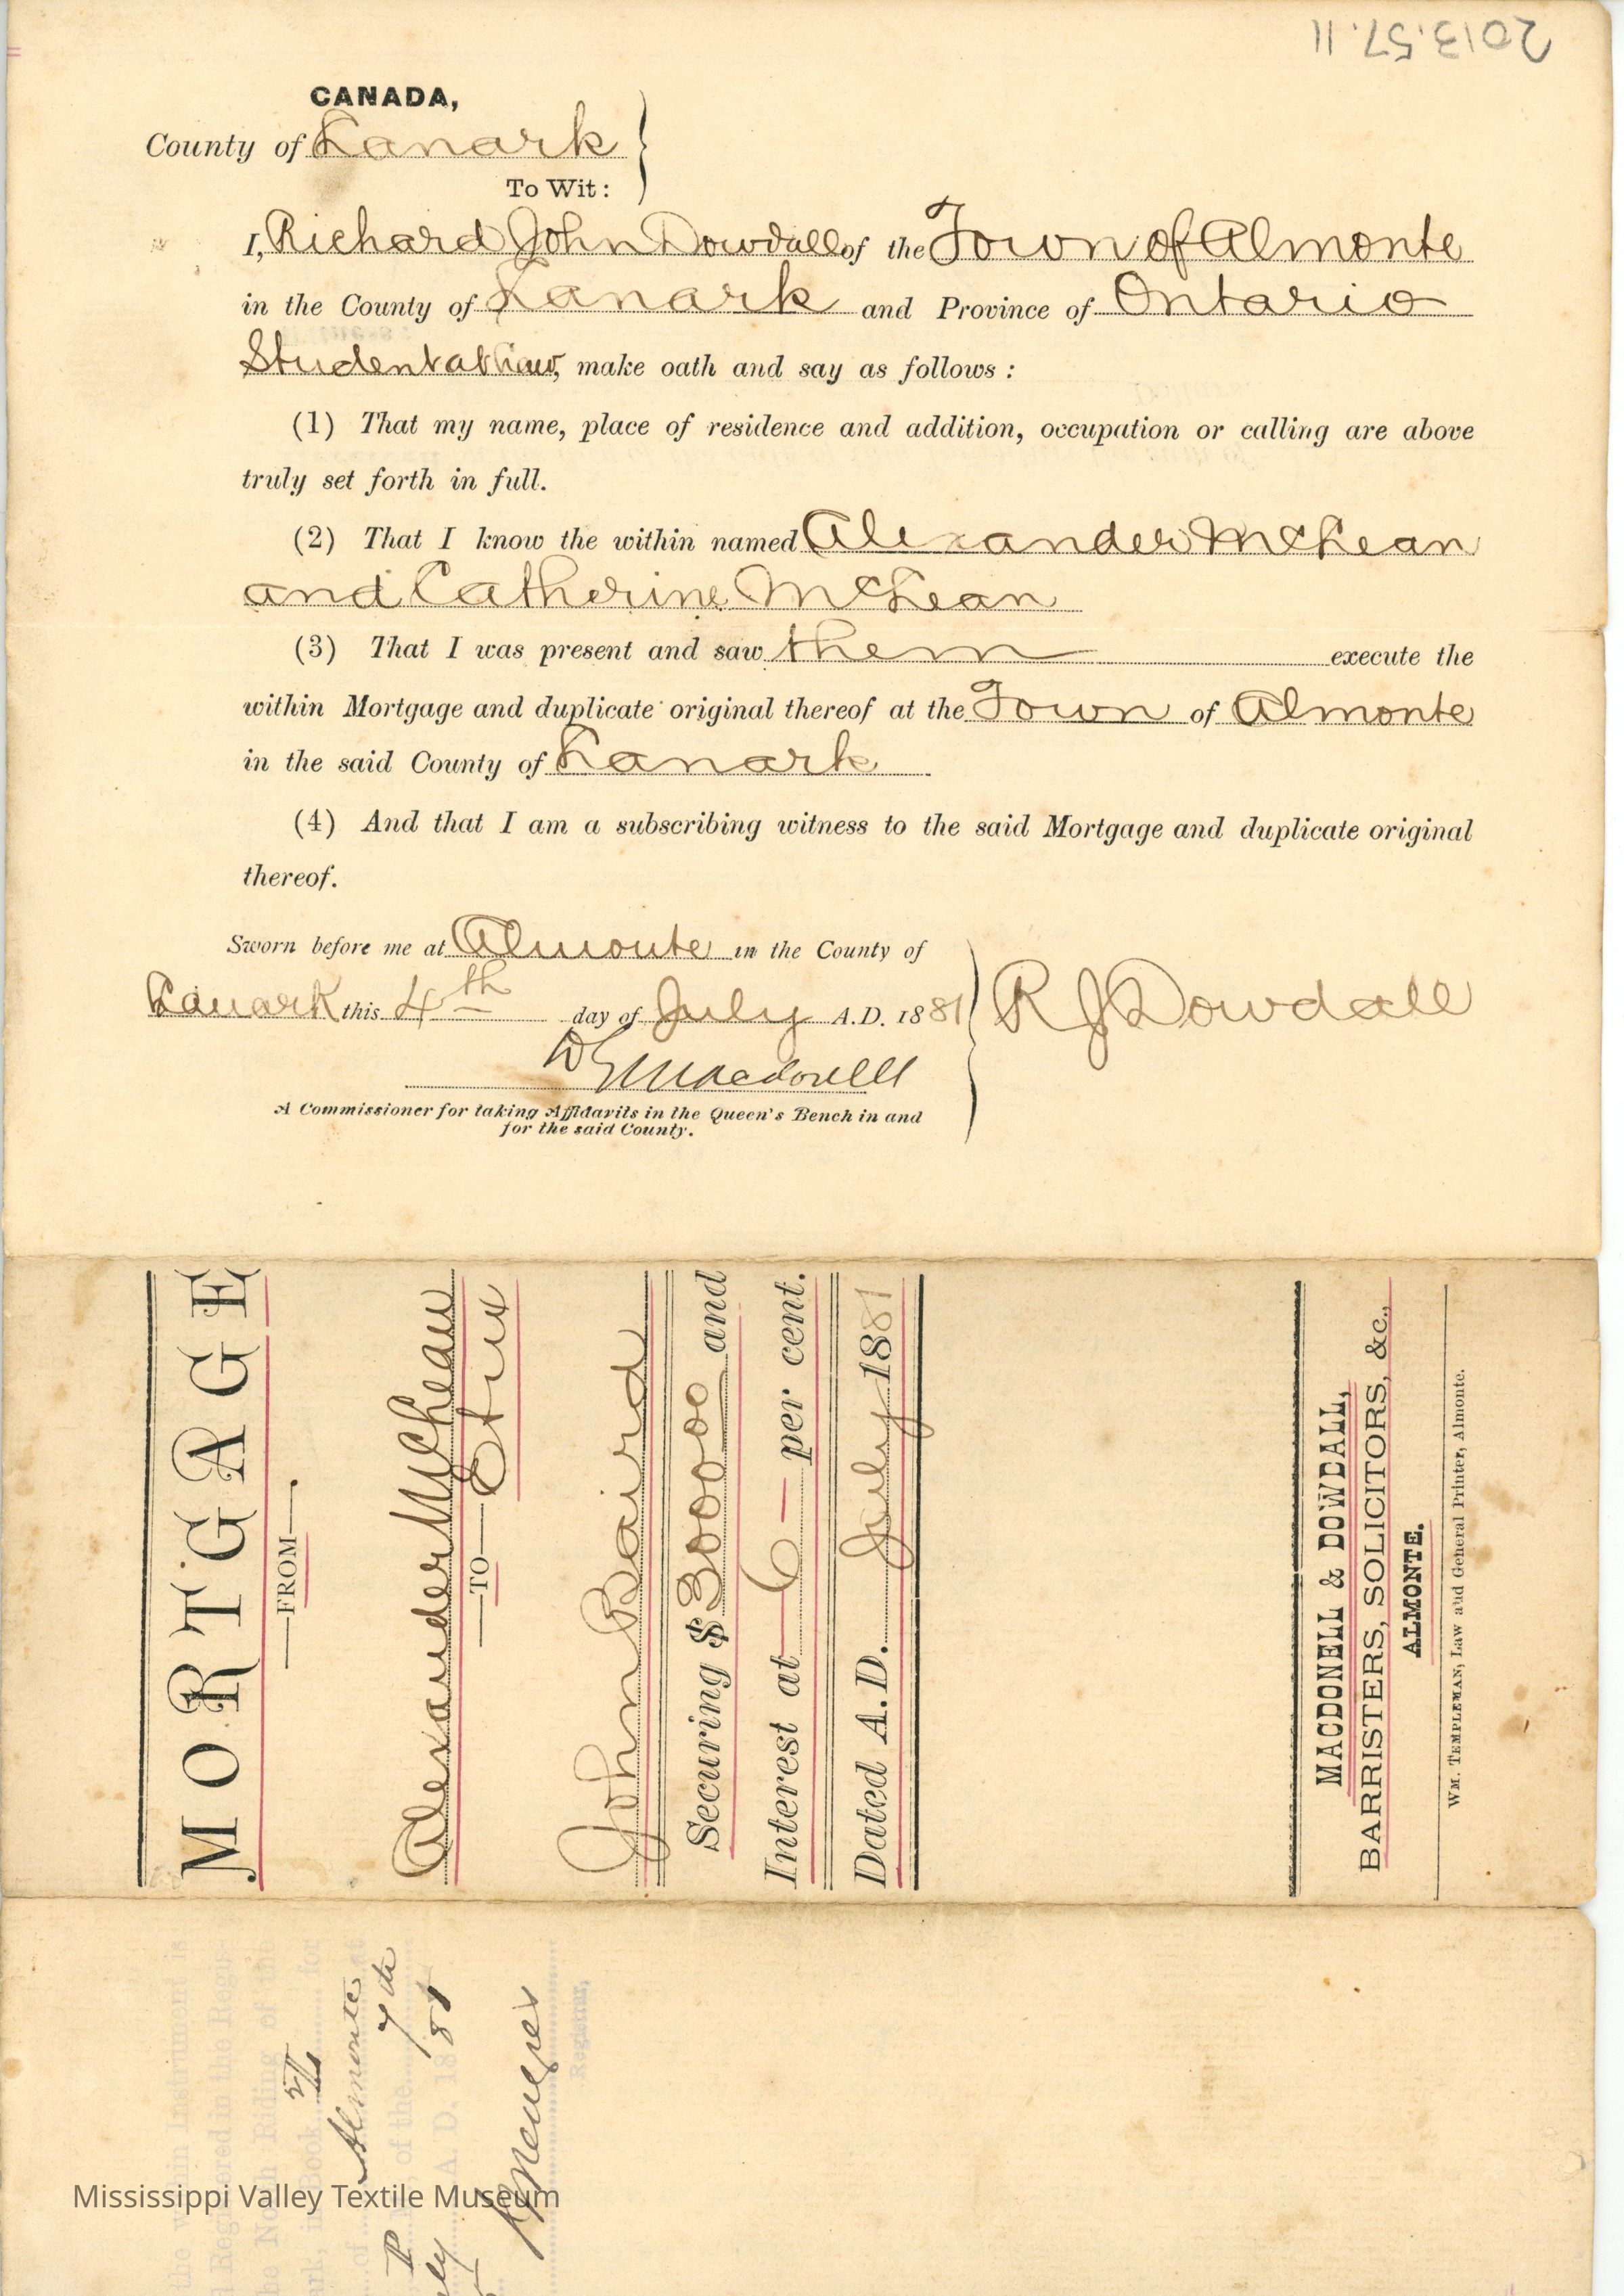 2013.57.11
CANADA,
County of Lanark
To Wit:
I, Richard John Dowdall of the Town of Almonte
in the County of Lanark and Province of Ontario
Student at Law, make oath and say as follows :
(1) That my name, place of residence and addition, occupation or calling are above
truly set forth in full.
(2) That I know the within named Alexander McLean
and Catherine McLean
(3) That I was present and saw them execute the
within Mortgage and duplicate original thereof at the Town of Almonte
in the said County of Lanark
(4) And that I am a subscribing witness to the said Mortgage and duplicate original
thereof.
Sworn before me at Almonte in the County of
Lanark this 4th day of July A.D. 1881
R J Dowdall
Macdonell
A Commissioner for taking Affidavits in the Queen's Bench in and
for the said County.
MORTGAGE
FROM
Alexander McLean
Et ux
TO
John Baird
Securing $300.00 and
Interest at 6 per cent.
Dated A.D. July 1881
MACDONELL & DOWDALL,
BARRISTERS, SOLICITORS, &c.,
ALMONTE.
WM. TEMPLEMAN, Law and General Printer, Almonte.
the within Instrument is
Registered in the Regis-
the North Riding of the
ark, in Book for
of Almonte at
of the 7th
A. D. 1881
Registrar,
Mississippi Valley Textile Museum